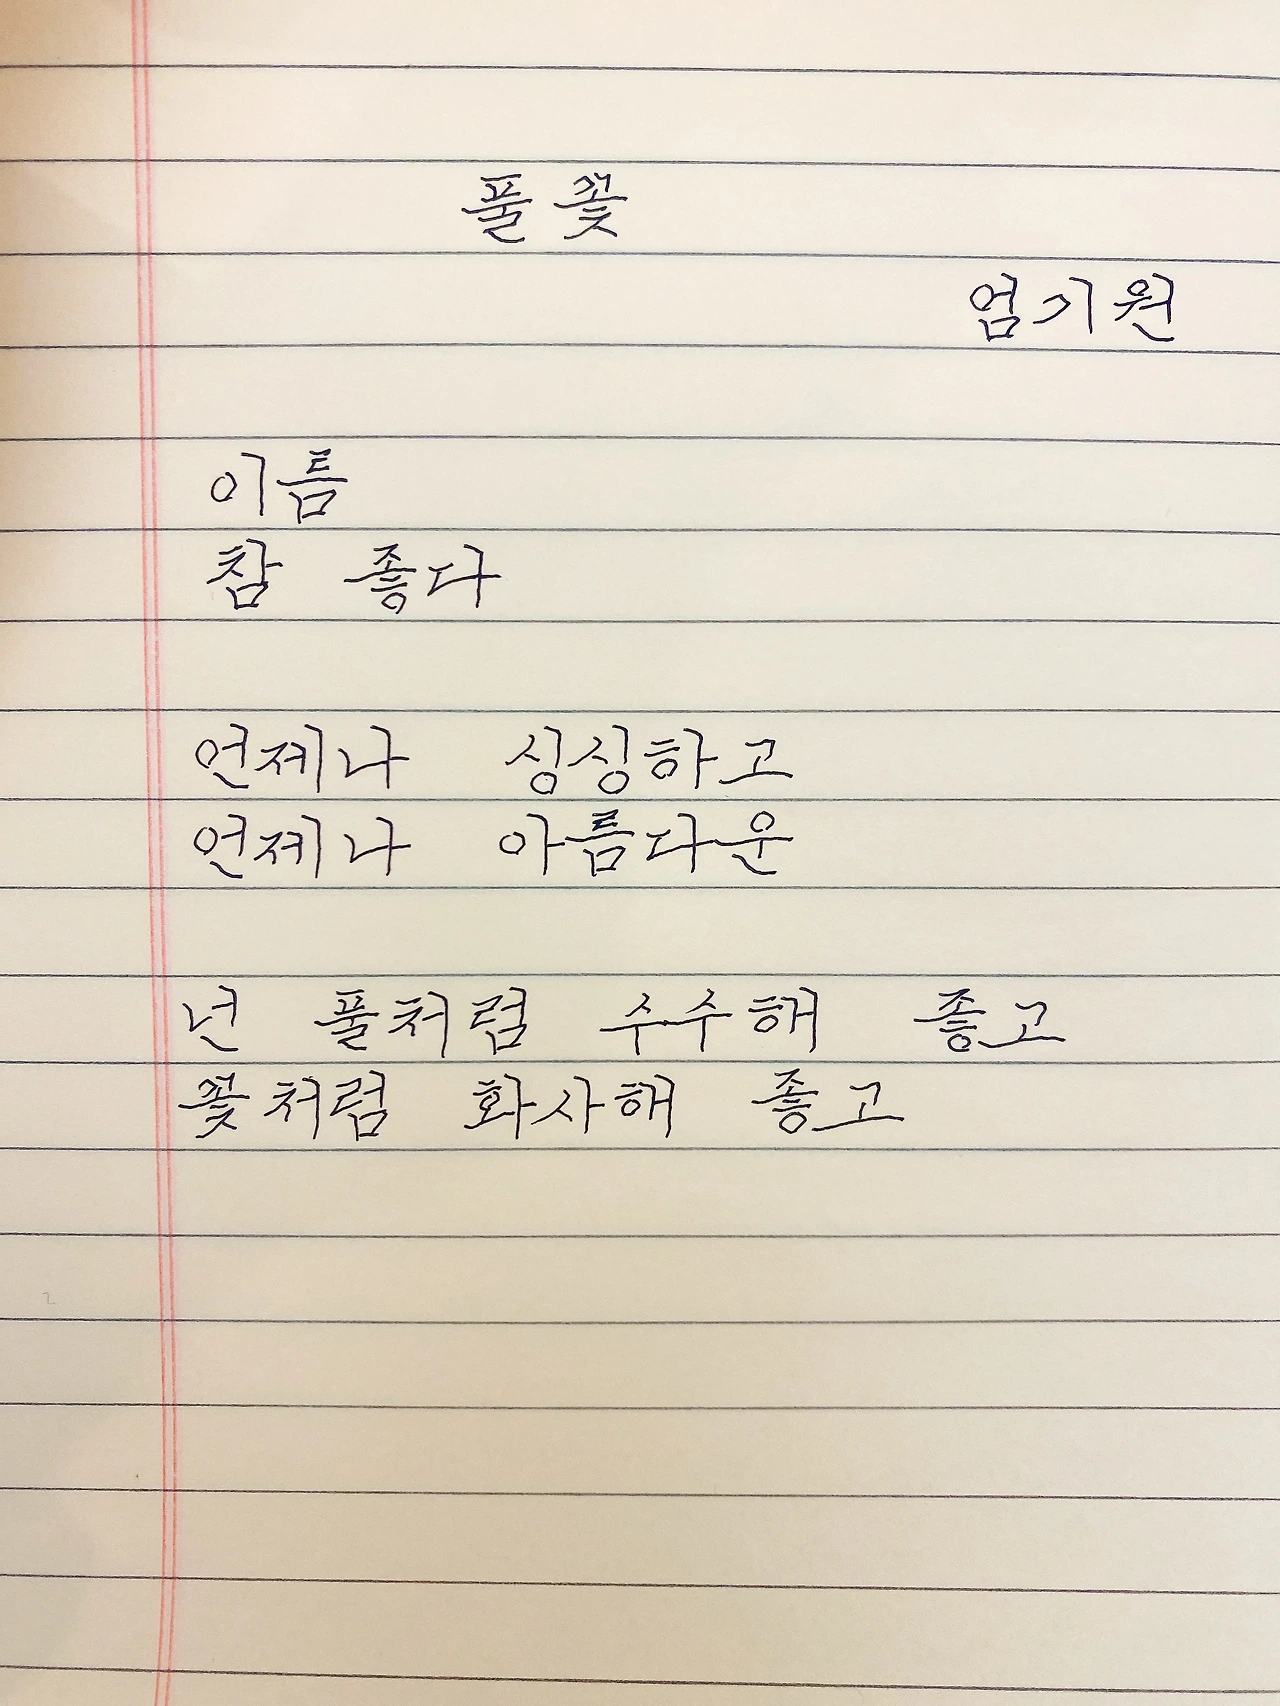 풀꽃
엄기원
이름
참 좋다
언제나 싱싱하고
언제나 아름다운
넌 풀처럼 수수해 좋고
꽃처럼 화사해 좋고